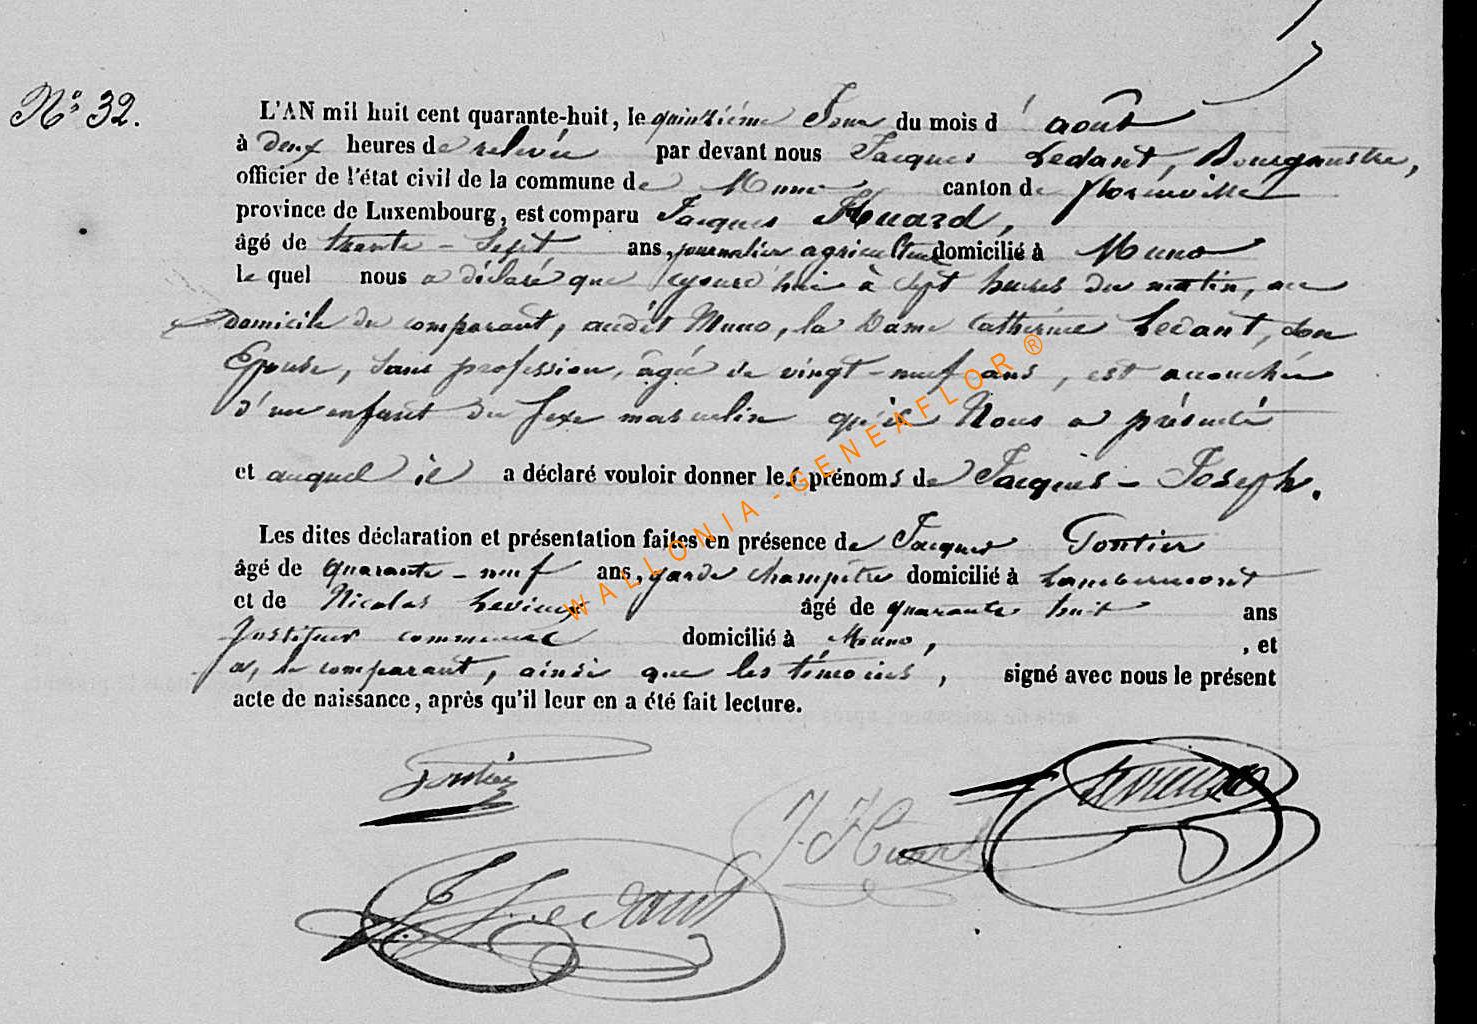 N° 32.
L'AN mil huit cent quarante-huit, le quinzième Jour du mois d'août
à deux heures de relevée par devant nous Jacques Ledant, Bourgmestre,
officier de l'état civil de la commune de Muno canton de florenville
province de Luxembourg, est comparu Jacques Huard,
âgé de trente-sept ans, journalier agriculteur domicilié à Muno
le quel nous a déclaré que cejourd'hui à sept heures du matin, au
domicile du comparant, audit Muno, la Dame Catherine Ledant, son
Epouse, sans profession, âgée de vingt-neuf ans, est accouchée
d'un enfant du sexe masculin qu'il Nous a présenté
et auquel il a déclaré vouloir donner les prénoms de Jacques-Joseph.
Les dites déclaration et présentation faites en présence de Jacques Pontier
âgé de quarante-neuf ans, garde champêtre domicilié à Lambermont
et de Nicolas Levieux âgé de quarante huit ans
Instituteur communal domicilié à Muno, , et
a, le comparant, ainsi que les témoins, signé avec nous le présent
acte de naissance, après qu'il leur en a été fait lecture.
Pontier
Levieux
J. Huart
J. J. Ledant
WALLONIA-GENEAFLOR ®